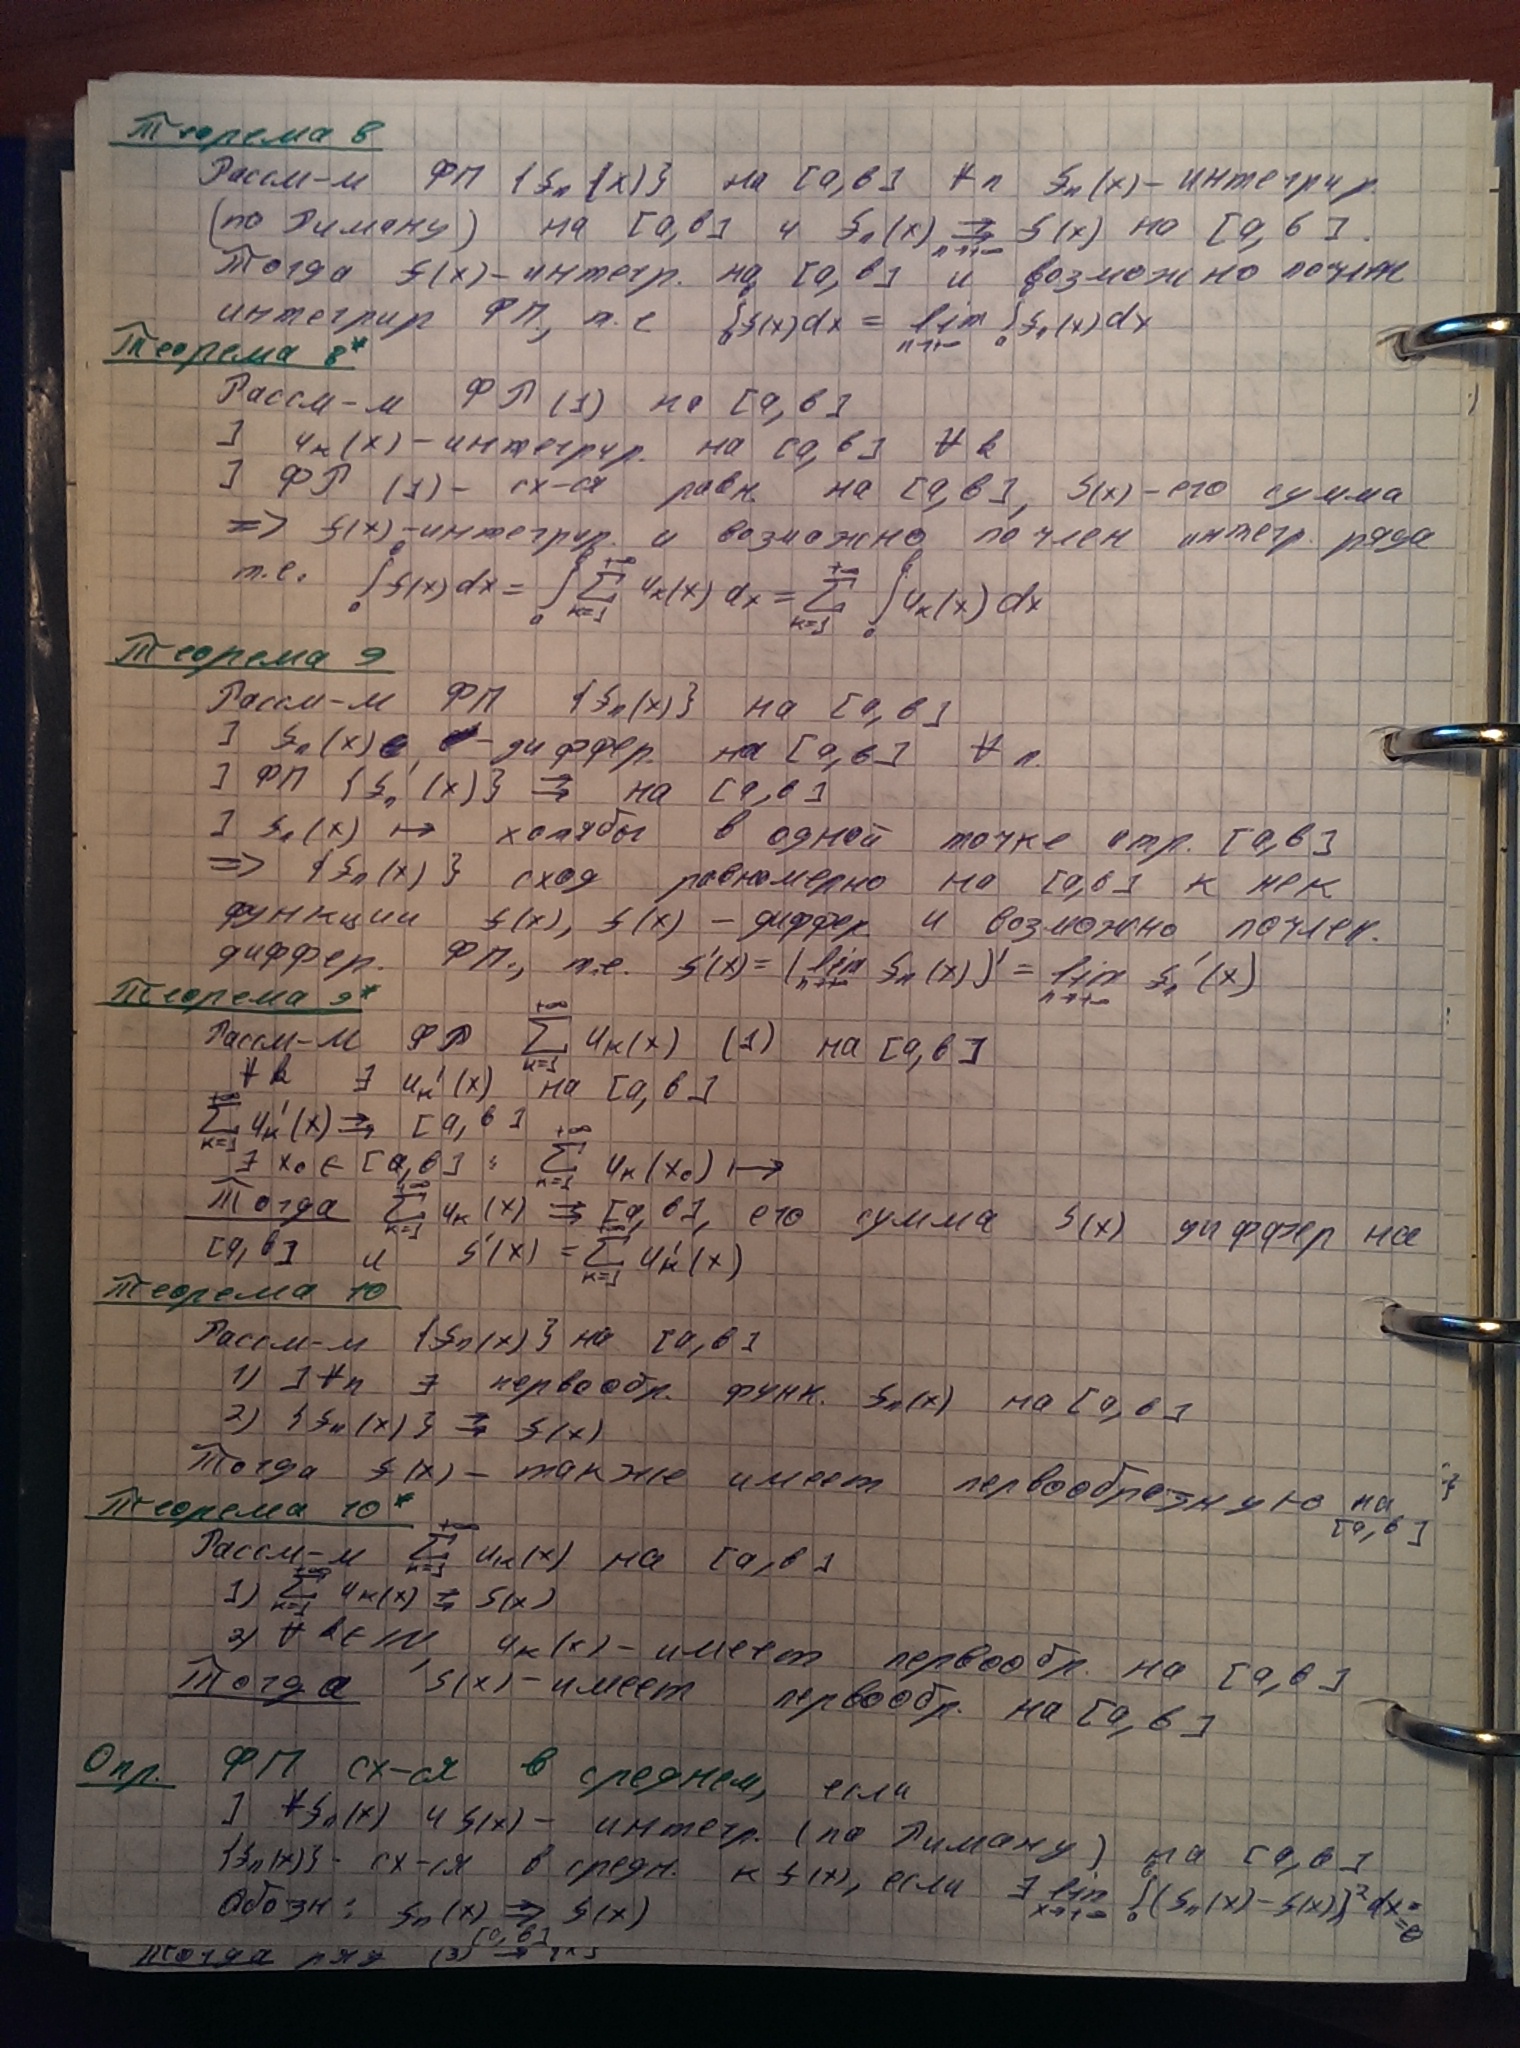 Теорема 8
Рассм-м ФП {fₙ(x)} на [a,b] ∀n fₙ(x) - интегрир.
(по Риману) на [a,b] и fₙ(x) ⇉ f(x) на [a,b].
n→+∞
Тогда f(x) - интегр. на [a,b] и возможно почлен
интегрир ФП, т.е ∫ₐᵇ f(x)dx = lim n→+∞ ∫ₐᵇ fₙ(x)dx
Теорема 8*
Рассм-м ФР (1) на [a,b]
] uₖ(x) - интегрир. на [a,b] ∀k
] ФР (1) - сх-ся равн. на [a,b], S(x) - его сумма
=> S(x) - интегрир. и возможно почлен интегр. ряда
т.е. ∫ₐᵇ S(x)dx = ∫ₐᵇ ∑ₖ₌₁^{+∞} uₖ(x)dx = ∑ₖ₌₁^{+∞} ∫ₐᵇ uₖ(x)dx
Теорема 9
Рассм-м ФП {fₙ(x)} на [a,b]
] fₙ(x) - диффер. на [a,b] ∀n.
] ФП {fₙ'(x)} ⇉ на [a,b]
] fₙ(x) ↦ хотябы в одной точке отр. [a,b]
=> {fₙ(x)} сход равномерно на [a,b] к нек
функции f(x), f(x) - диффер. и возможно почлен.
диффер. ФП., т.е. f'(x) = (lim n→+∞ fₙ(x))' = lim n→+∞ fₙ'(x)
Теорема 9*
Рассм-м ФР ∑ₖ₌₁^{+∞} uₖ(x) (1) на [a,b]
∀k ∃ uₖ'(x) на [a,b]
∑ₖ₌₁^{+∞} uₖ'(x) ⇉ [a,b]
∃ x₀ ∈ [a,b] : ∑ₖ₌₁^{+∞} uₖ(x₀) ↦
Тогда ∑ₖ₌₁^{+∞} uₖ(x) ⇉ [a,b], его сумма S(x) диффер на
[a,b] и S'(x) = ∑ₖ₌₁^{+∞} uₖ'(x)
Теорема 10
Рассм-м {fₙ(x)} на [a,b]
1) ] ∀n ∃ первообр. функ. fₙ(x) на [a,b]
2) {fₙ(x)} ⇉ f(x)
Тогда f(x) - также имеет первообразную на
[a,b]
Теорема 10*
Рассм-м ∑ₖ₌₁^{+∞} uₖ(x) на [a,b]
1) ∑ₖ₌₁^{+∞} uₖ(x) ⇉ S(x)
2) ∀ k∈ℕ, uₖ(x) - имеет первообр. на [a,b]
Тогда S(x) - имеет первообр. на [a,b]
Опр. ФП сх-ся в среднем, если
] ∀fₙ(x) и f(x) - интегр. (по Риману) на [a,b]
{fₙ(x)} - сх-ся в средн. к f(x), если ∃ lim x→+∞ ∫ₐᵇ (fₙ(x) - f(x))² dx =
= 0
Обозн: fₙ(x) ⇒ f(x)
[a,b]
Тогда ряд (3)